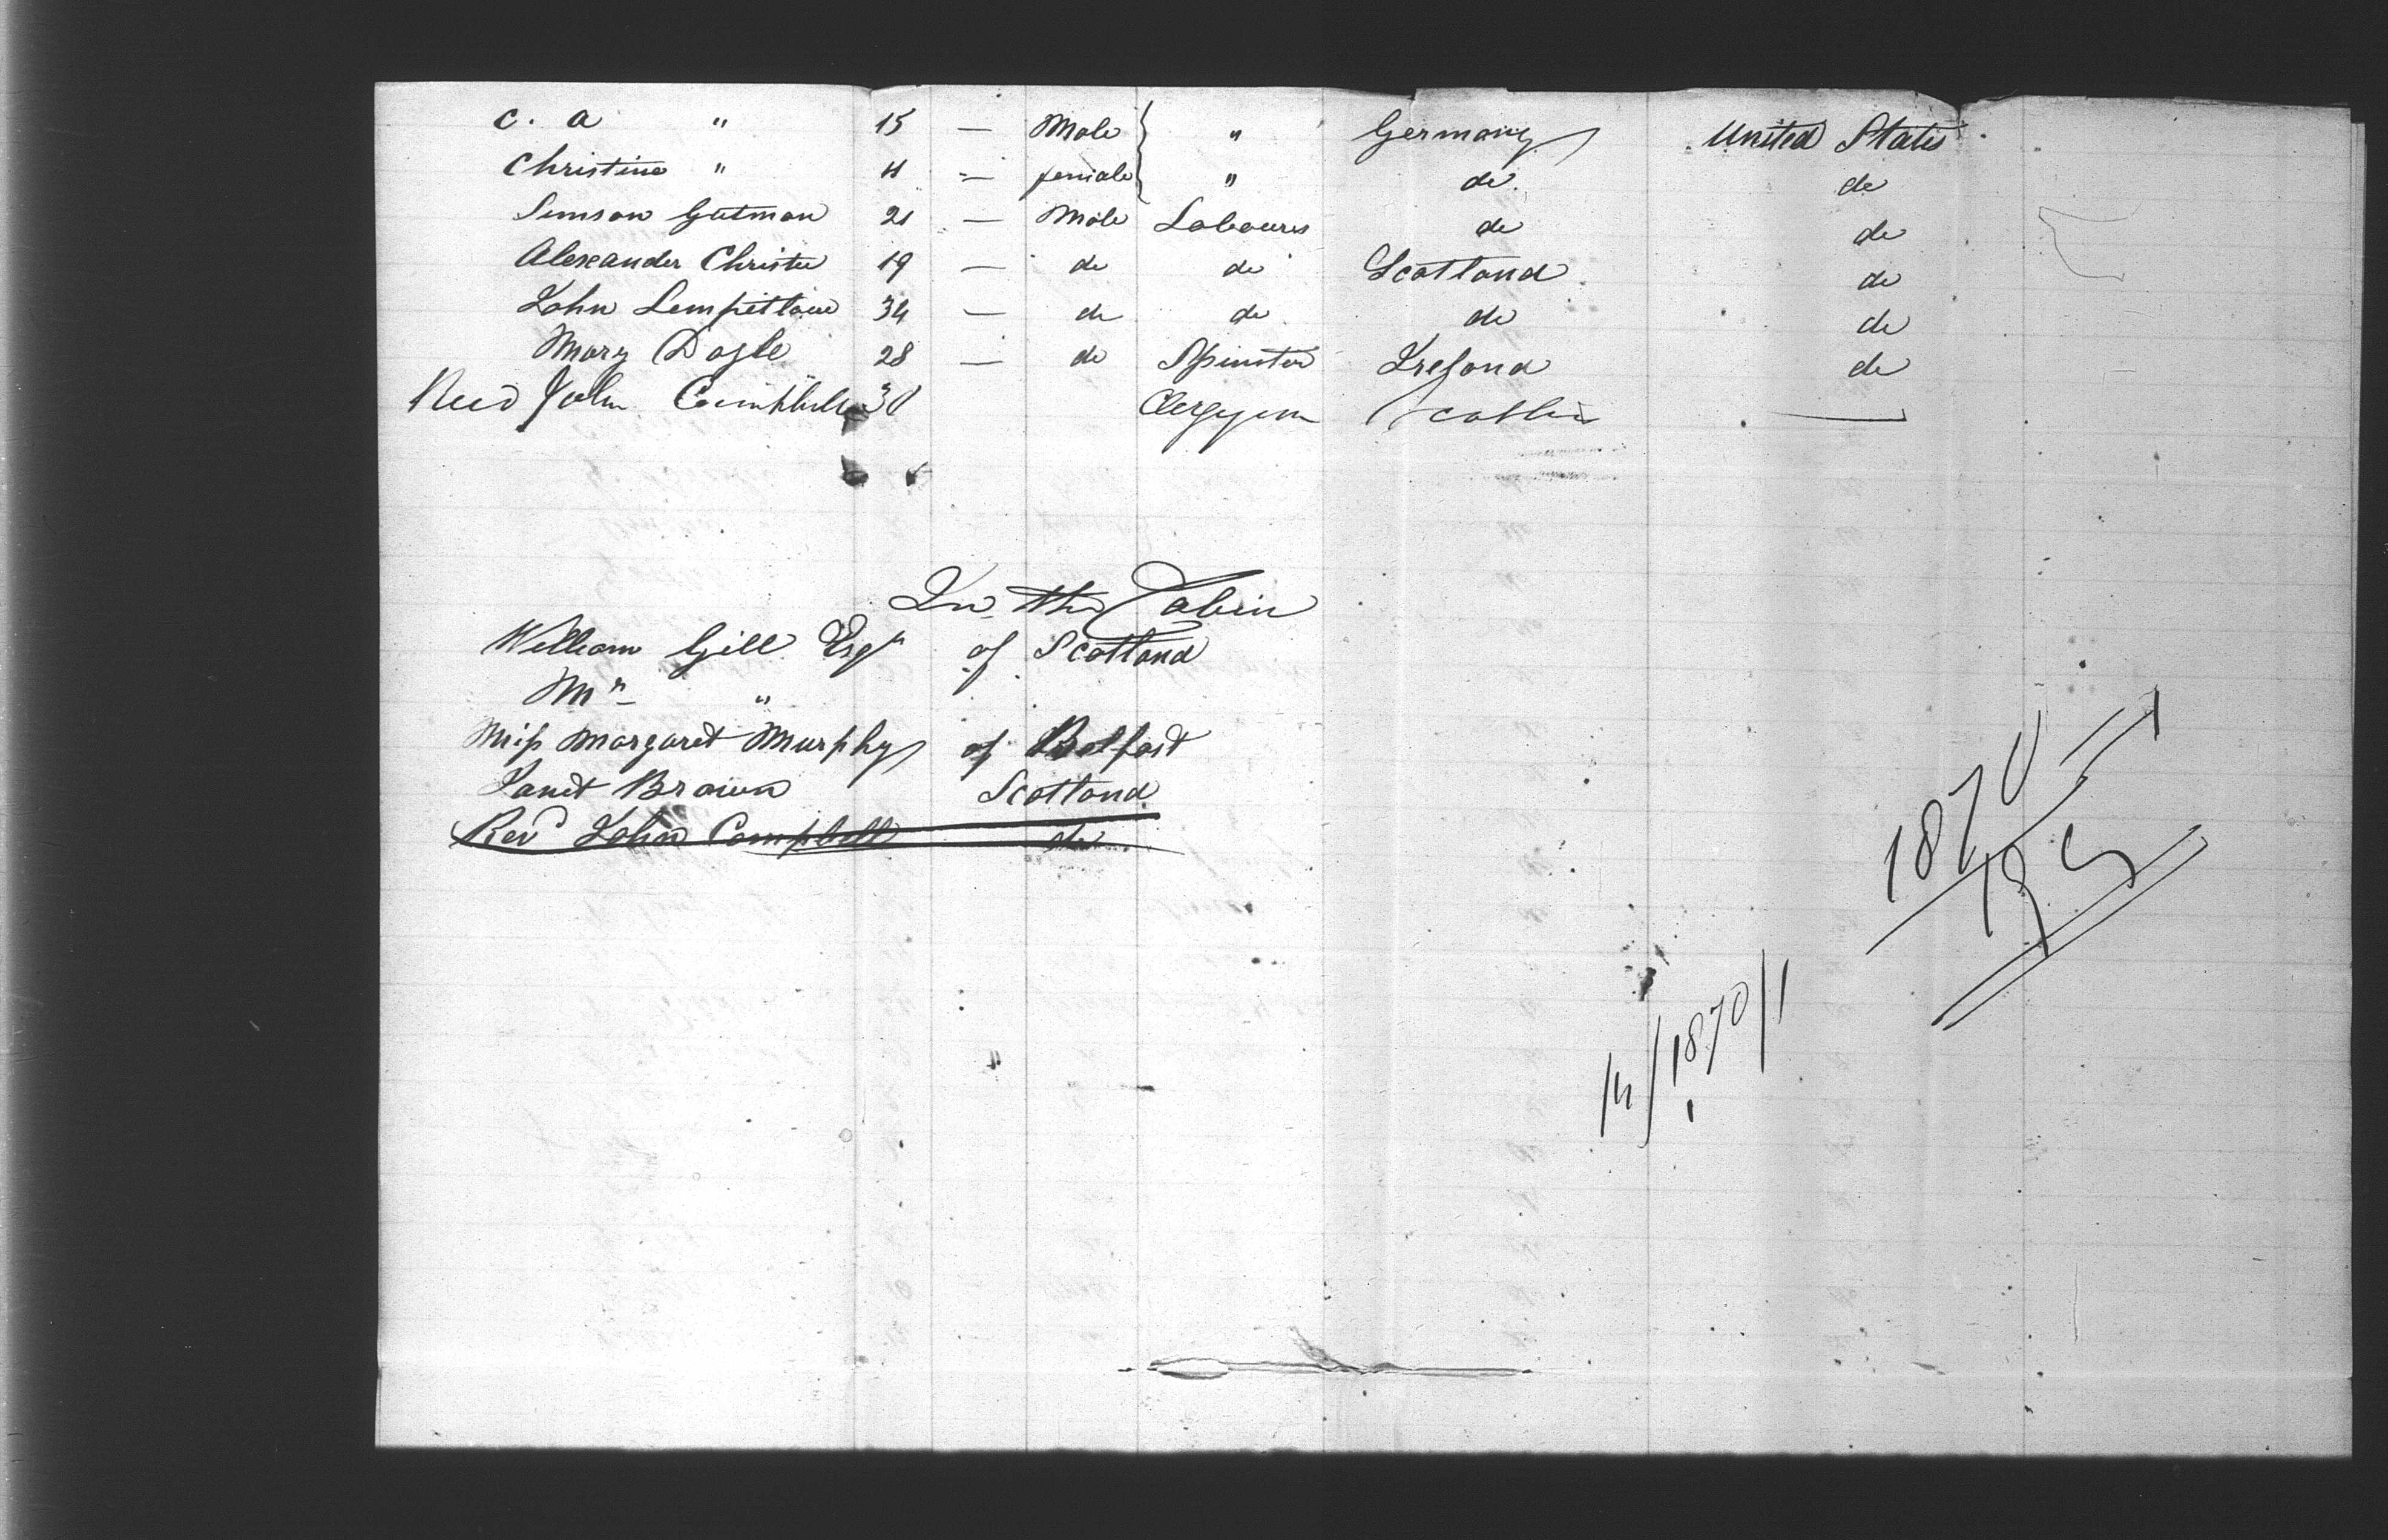 C. A " 15 — Male } " Germany United States
Christine " 11 — female } " do do
Simson Gutman 21 — Male Labourer do do
Alexander Christie 19 — do do Scotland do
John 34 — do do do do
Mary Dogle 28 — do Spinster Ireland do
Revd John Campbell 30 Clergym Scotld —
In the Cabin
William Gill Esqr of Scotland
Mrs "
Miss Margaret Murphy of Belfast
Janet Brown Scotland
Revd John Campbell do
1870
195
14/1870/1